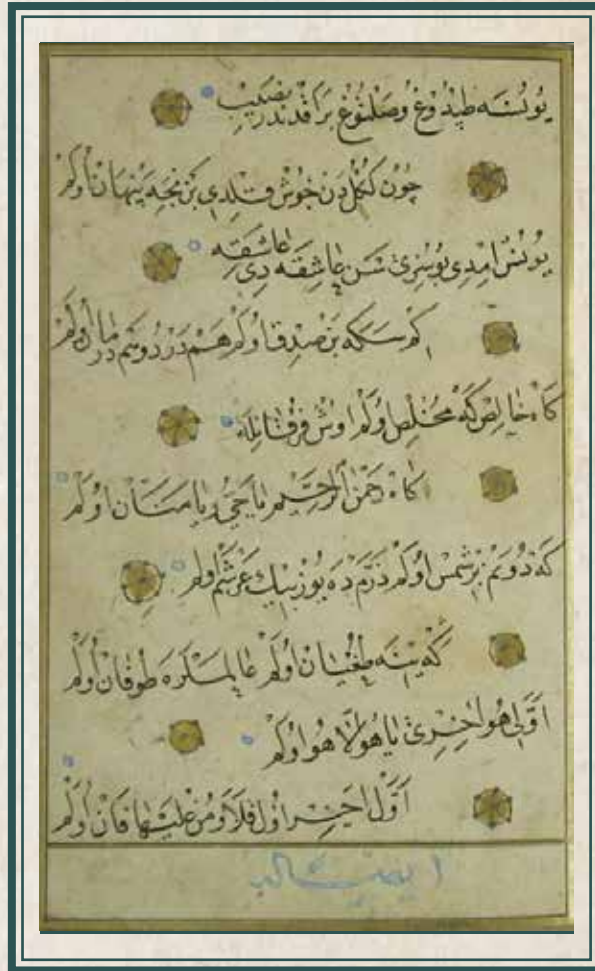 يونسه طپدوغ وصلتوغ براقدندر نصيب
چون كڭلدن جوش قلدى بن نجه پنهان اولم
يونس امدى بو سزى سن عاشقه دى عاشقه
كم سكه بن صدق اولم هم درد و هم درمان اولم
كاه خالص كه مخلص اولم اوش فرقانله
كاه رحمن الرحيم يا حى و يا منان اولم
كه دونم بر شمس اولم ذرمده يوز بيك عرشم اولم
كه ينه طغيان اولم عالملره طوفان اولم
اولى هو اخرى يا هو لا هو اولم
اول اخر اول قلا و من عليها فان اولم
ايضا له